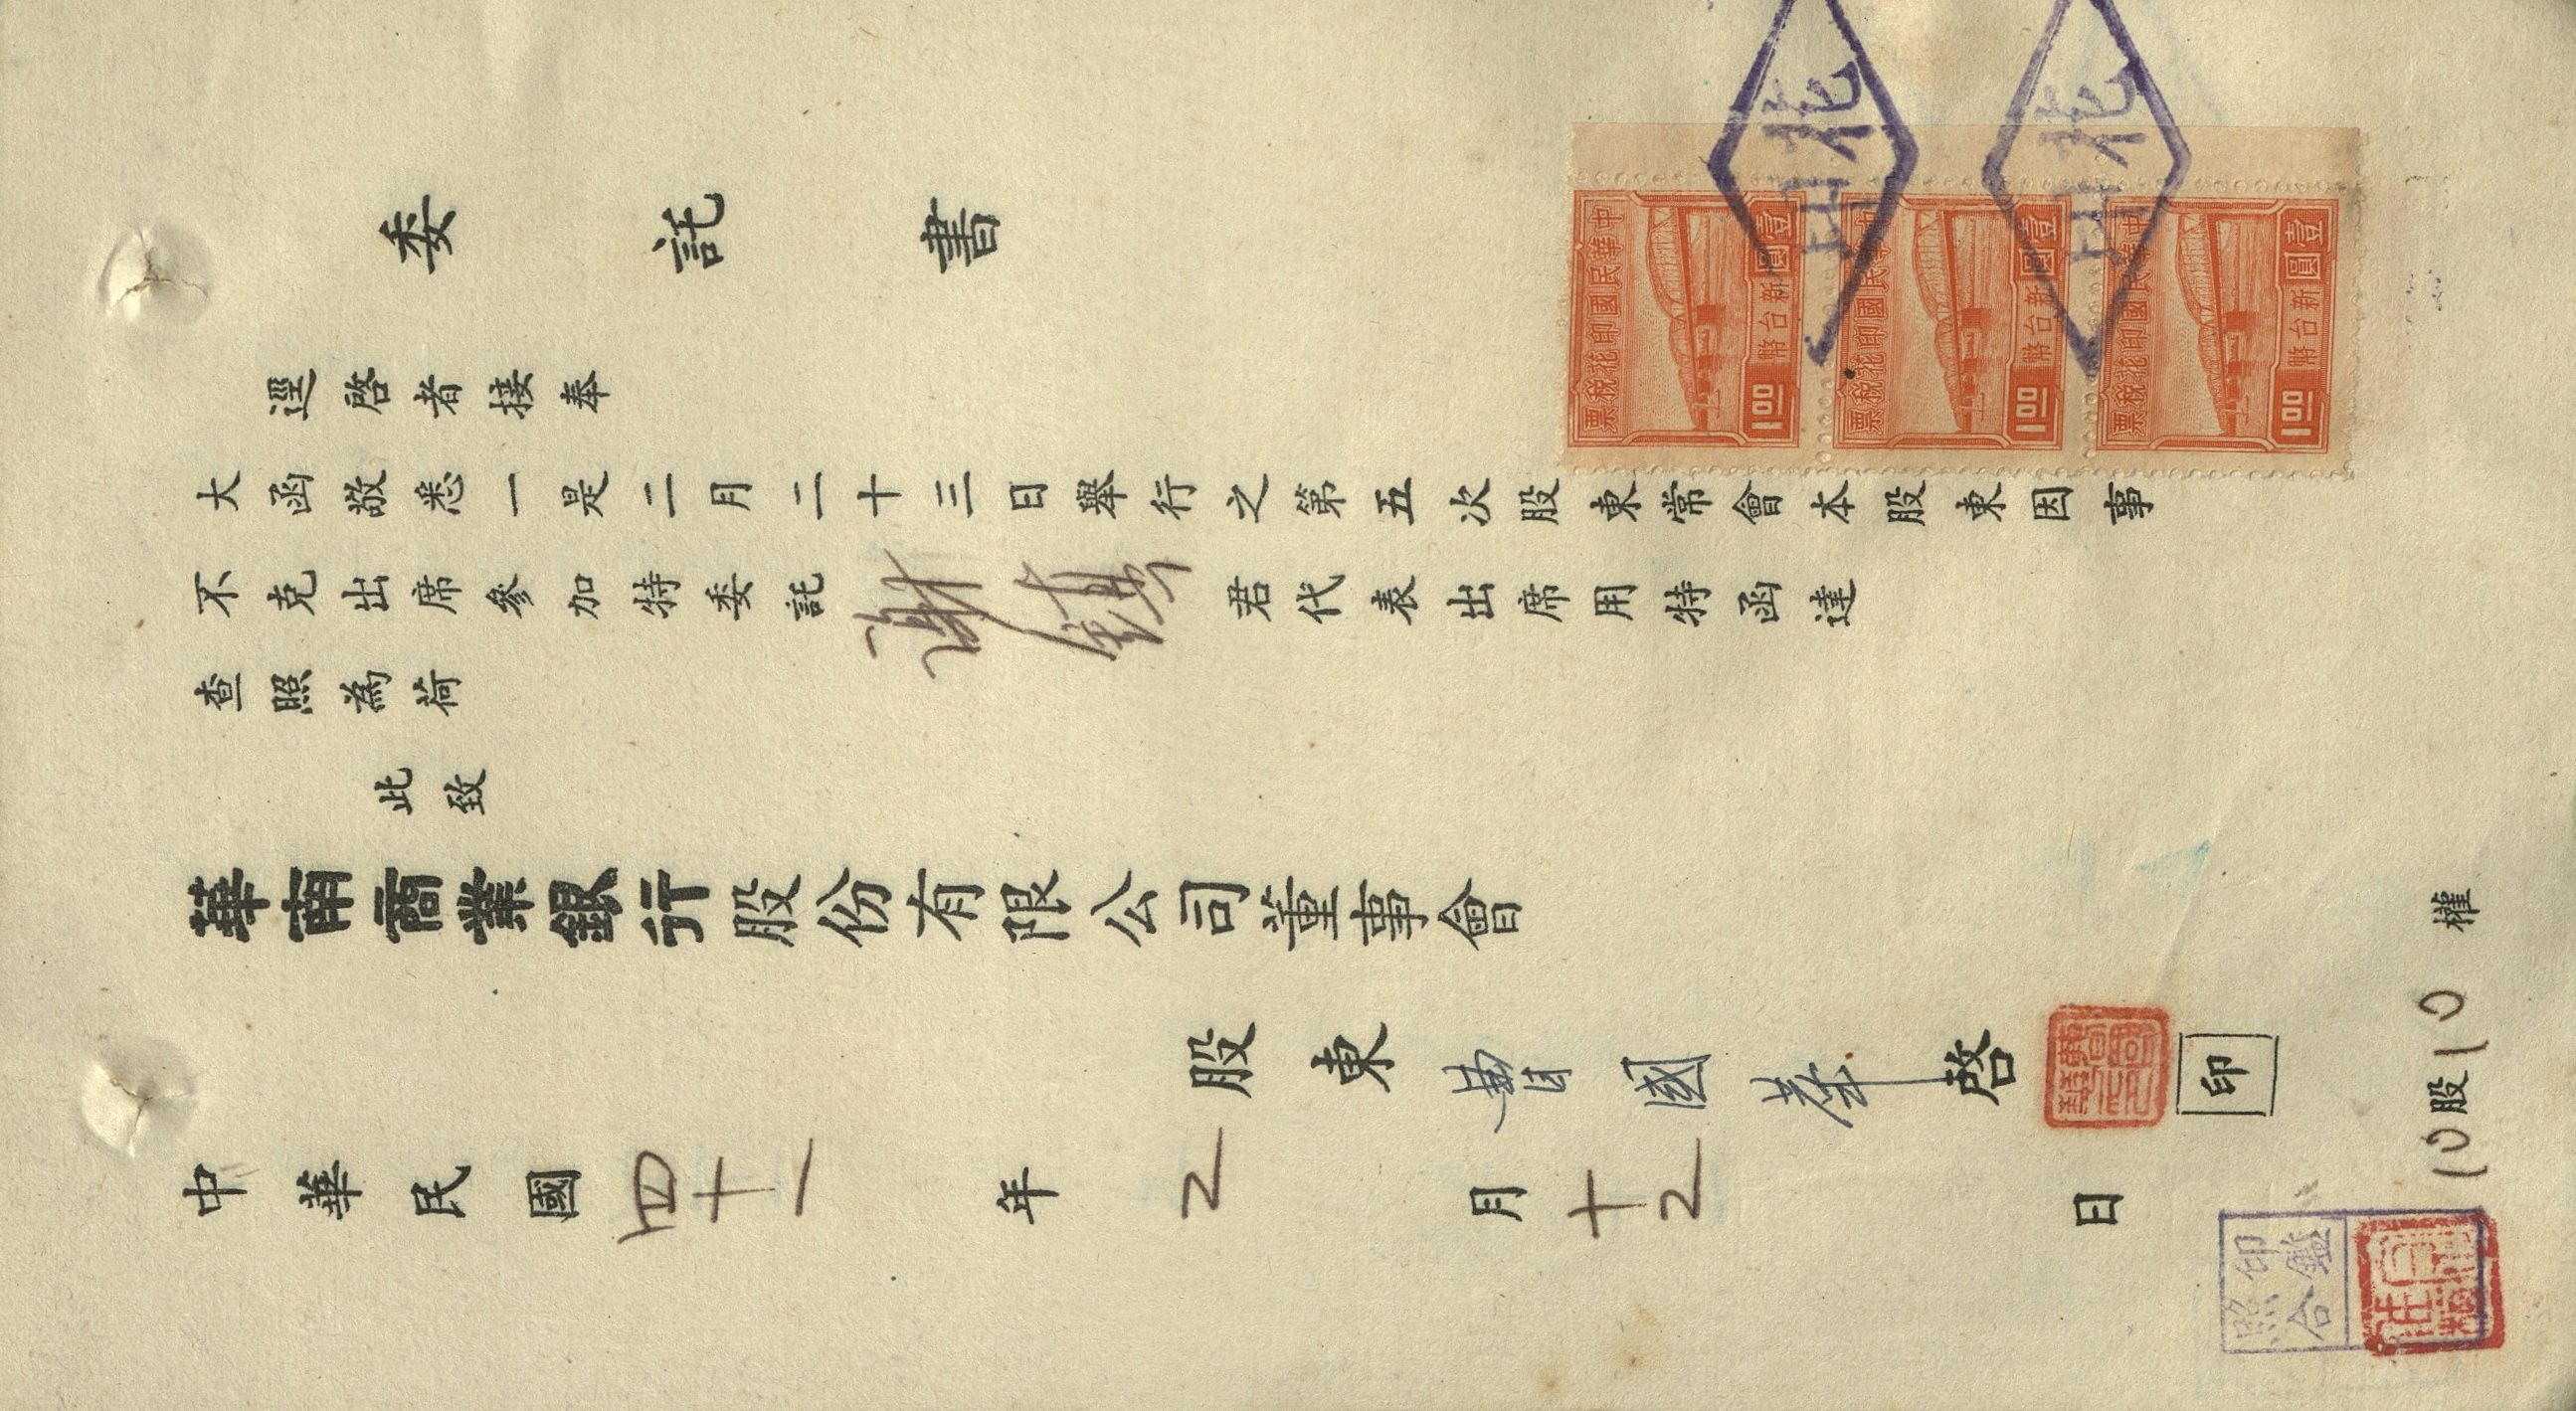 委託書
逕啓者接奉
大函敬悉一是二月二十三日舉行之第五次股東常會本股東因事
不克出席參加特委託謝 君代表出席用特函達
查照為荷
此致
華南商業銀行股份有限公司董事會
股東曹國華啓 印
中華民國四十一年2月十2日
10股10權
印鑑照合
中華民國印花稅票
壹圓
新台幣
1.00
中華民國印花稅票
壹圓
新台幣
1.00
中華民國印花稅票
壹圓
新台幣
1.00